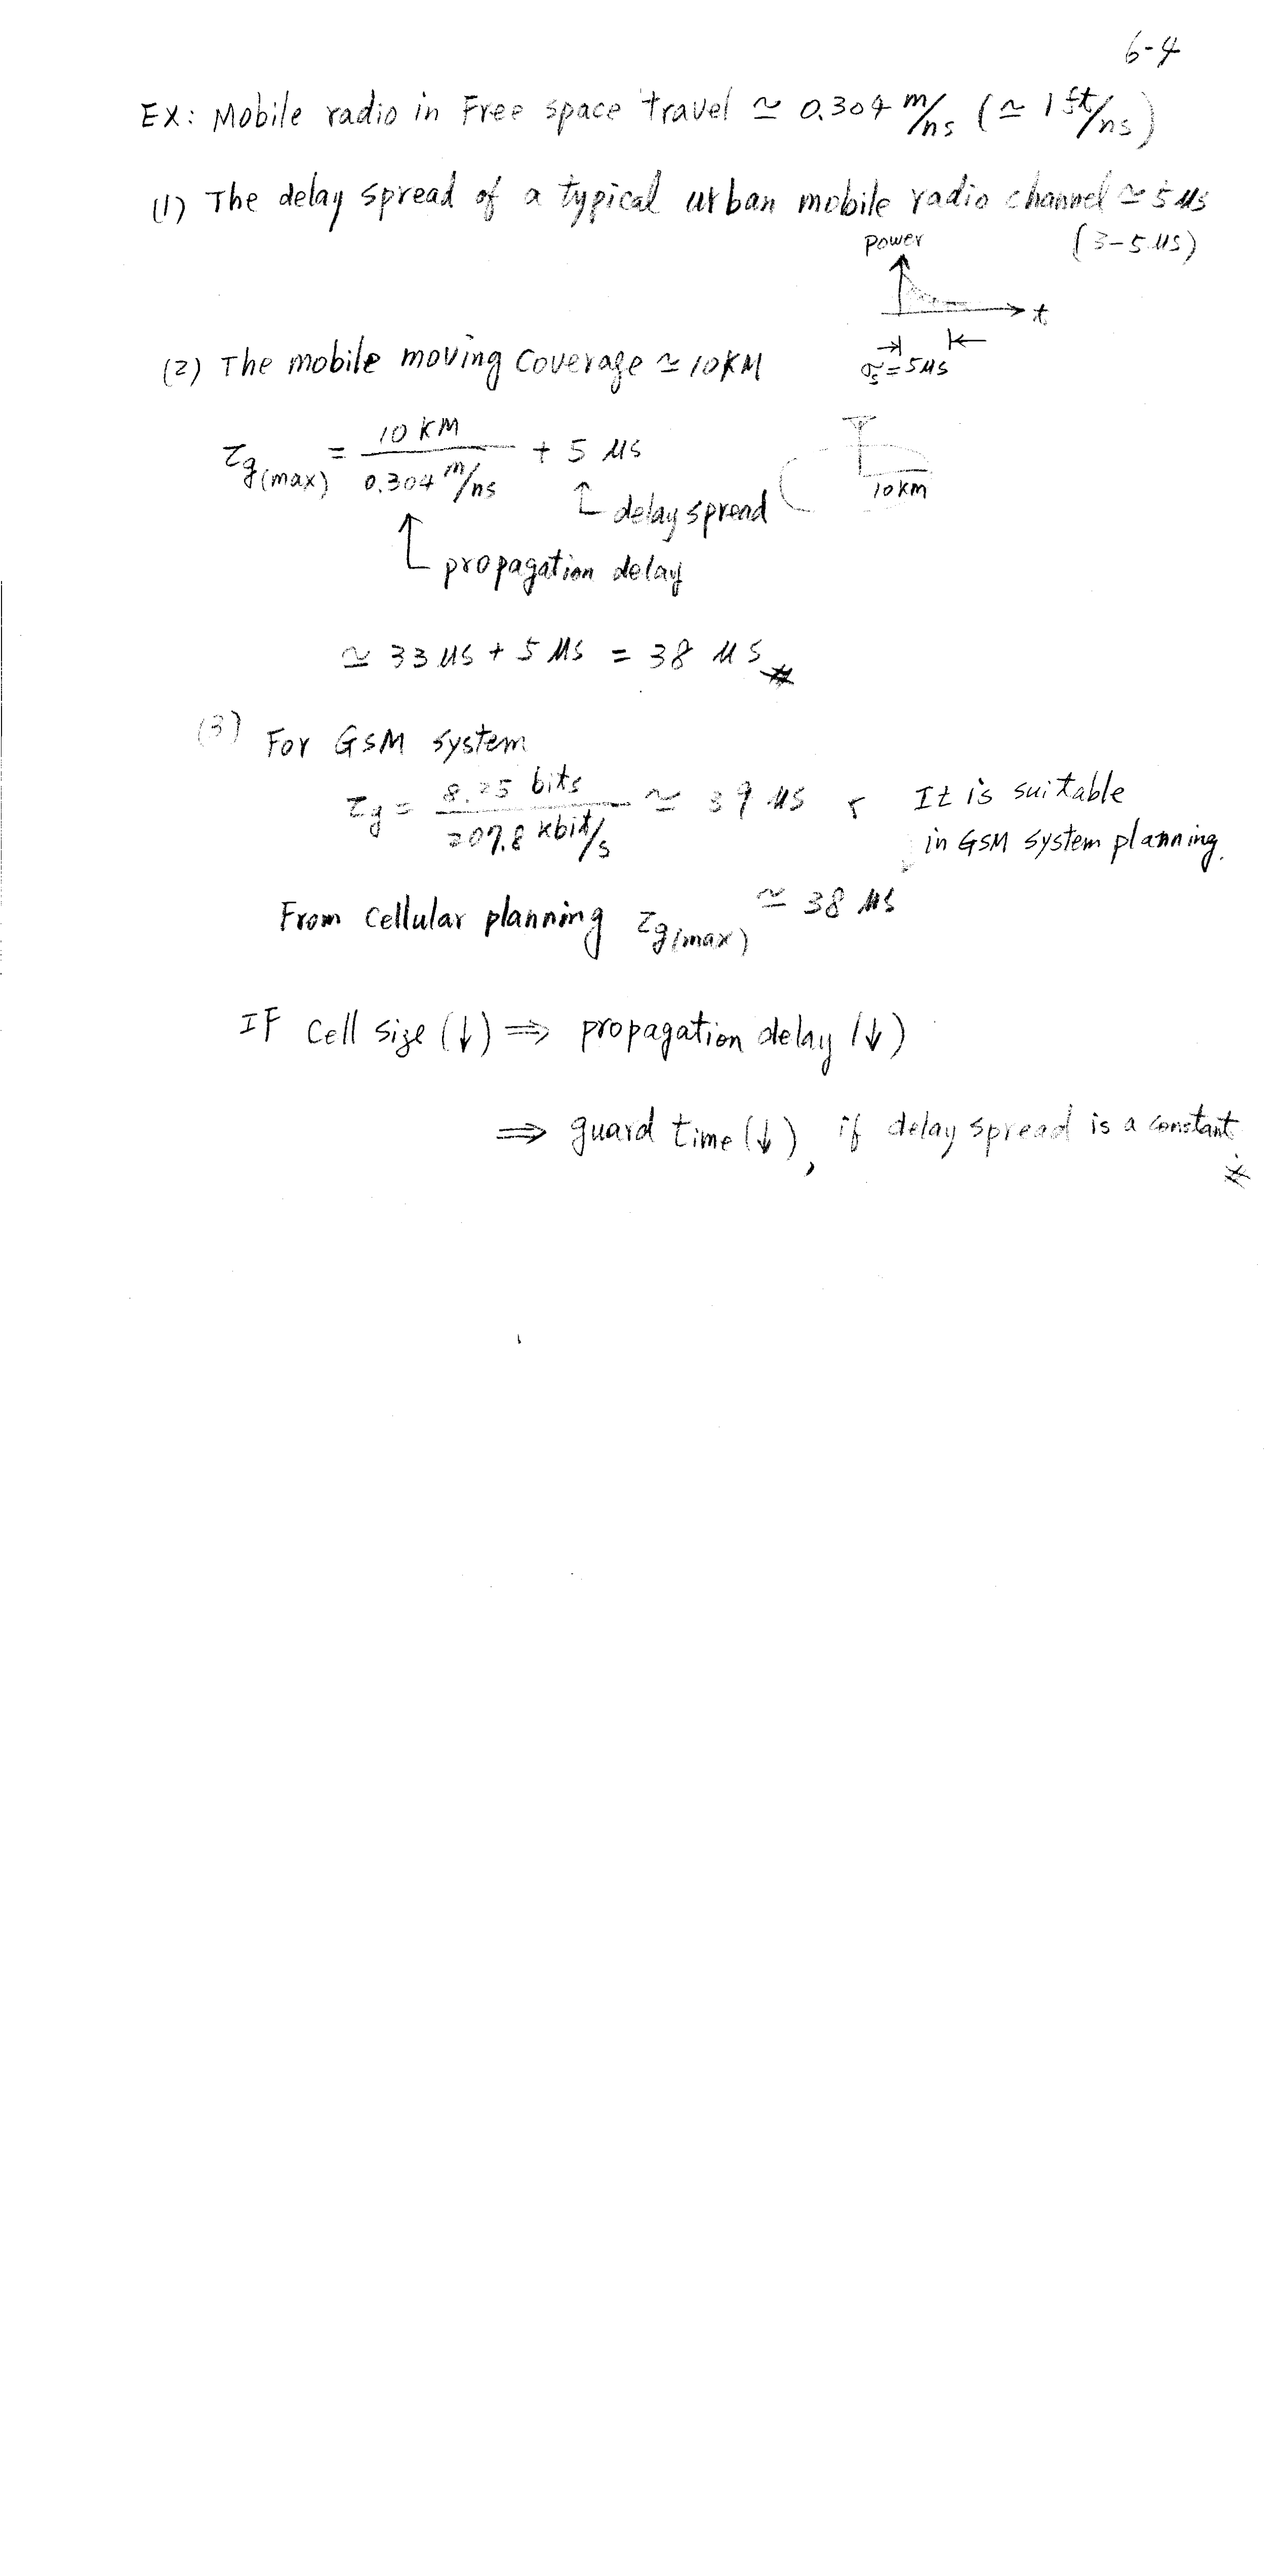 6-4
EX: Mobile radio in Free space travel ≃ 0.304 m/ns (≃ 1 ft/ns)
(1) The delay spread of a typical urban mobile radio channel ≃ 5 μs
(3-5 μs)
Power
t
σs = 5 μs
(2) The mobile moving coverage ≃ 10 KM
τg(max) = 10 KM / 0.304 m/ns + 5 μs
10 KM
↑ delay spread
↑ propagation delay
≃ 33 μs + 5 μs = 38 μs #
(3) For GSM system
τg = 8.25 bits / 207.8 kbit/s ≃ 39 μs
It is suitable
in GSM system planning.
From cellular planning τg(max) ≃ 38 μs
IF cell size (↓) ⇒ propagation delay (↓)
⇒ guard time (↓), if delay spread is a constant. #